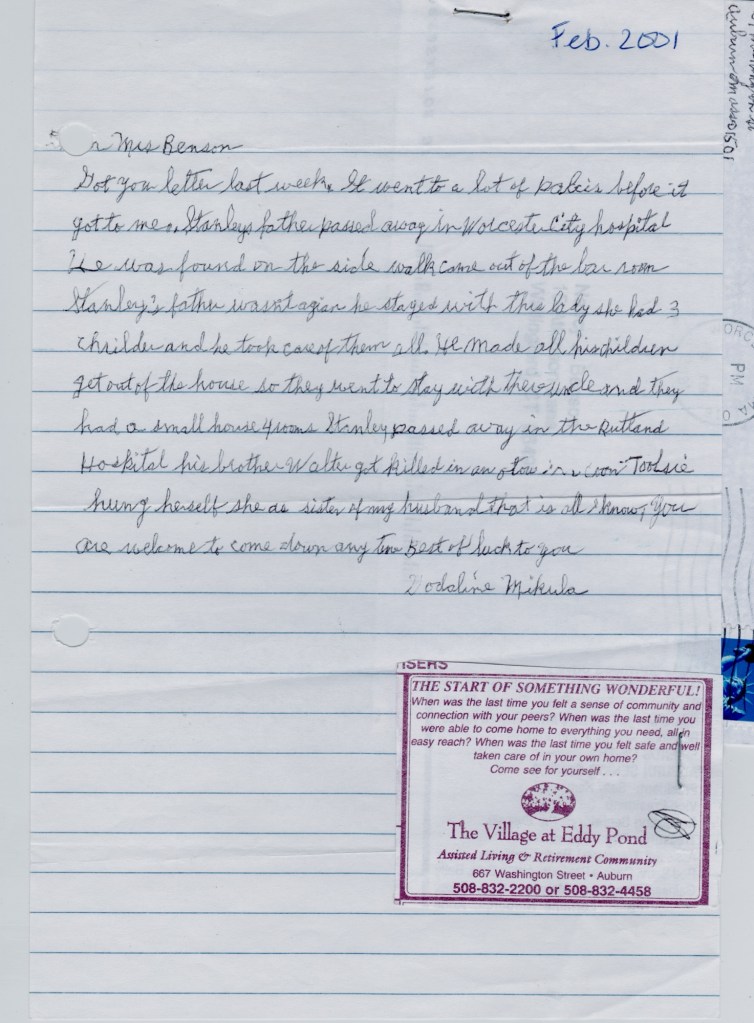 Feb. 2001
Mrs Benson
Got you letter last week. It went to a lot of palces before it
got to me. Stanleys father passed away in Worcester City hospital
He was found on the side walk come out of the bar room
Stanley's father wasnt agian he stayed with this lady she had 3
and he took care of them all. He made all his children
get out of the house so they went to stay with there uncle and they
had a small house 4 rooms Stanley passed away in the Rutland
Hospital his brother Walter got killed in an Tootsie
hung herself she as sister of my husband that is all I know, You
are welcome to come down any time Best of luck to you
Mikula
ISERS
THE START OF SOMETHING WONDERFUL!
When was the last time you felt a sense of community and
connection with your peers? When was the last time you
were able to come home to everything you need, all in
easy reach? When was the last time you felt safe and well
taken care of in your own home?
Come see for yourself . . .
The Village at Eddy Pond
Assisted Living & Retirement Community
667 Washington Street • Auburn
508-832-2200 or 508-832-4458
Auburn mass 01501
PM